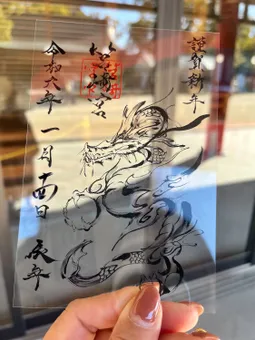 謹賀新年
令和六年 一月十四日 辰年